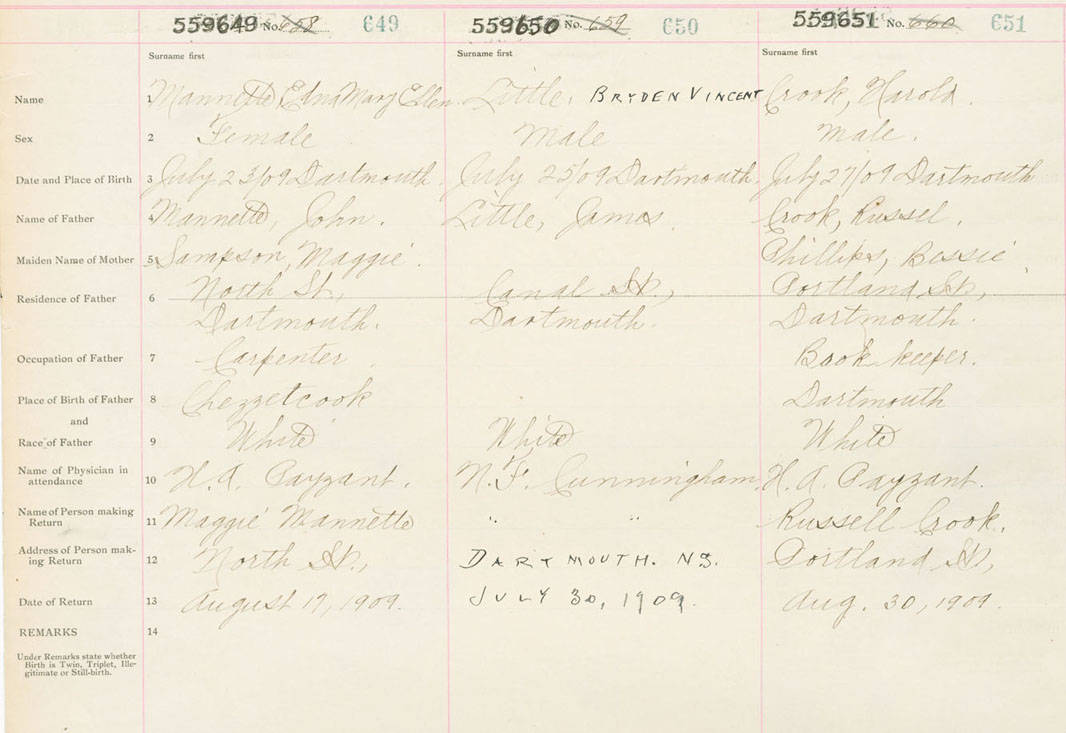 559649 No. 658 649 559650 No. 659 650 559651 No. 660 651
Surname first Surname first Surname first
Name 1 Mannette, Edna Mary Ellen Little, BRYDEN VINCENT Crook, Harold.
Sex 2 Female Male Male.
Date and Place of Birth 3 July 23/09 Dartmouth. July 25/09 Dartmouth. July 27/09 Dartmouth
Name of Father 4 Mannette, John. Little, James. Crook, Russel.
Maiden Name of Mother 5 Sampson, Maggie. Phillips, Bessie,
Residence of Father 6 North St., Canal St., Portland St.,
Dartmouth. Dartmouth. Dartmouth.
Occupation of Father 7 Carpenter Book keeper.
Place of Birth of Father 8 Chezzetcook Dartmouth
and
Race of Father 9 White White White
Name of Physician in
attendance 10 H. A. Payzant. N. F. Cunningham. H. A. Payzant.
Name of Person making
Return 11 Maggie Mannette " " Russell Crook.
Address of Person mak-
ing Return 12 North St., DARTMOUTH. NS. Portland St.,
Date of Return 13 August 17, 1909. JULY 30, 1909. Aug. 30, 1909.
REMARKS 14
Under Remarks state whether
Birth is Twin, Triplet, Ille-
gitimate or Still-birth.